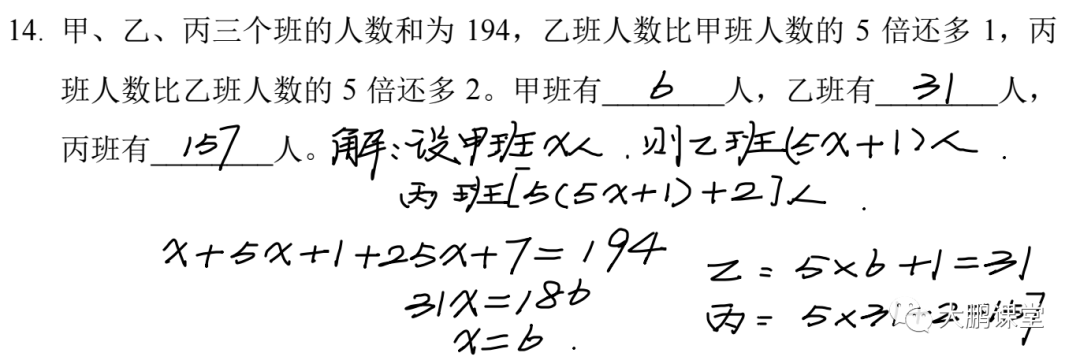 14. 甲、乙、丙三个班的人数和为 194，乙班人数比甲班人数的 5 倍还多 1，丙
班人数比乙班人数的 5 倍还多 2。甲班有 6 人，乙班有 31 人，
丙班有 157 人。解:设甲班x人.则乙班(5x+1)人.
丙班[5(5x+1)+2]人.
x+5x+1+25x+7=194
31x=186
x=6.
乙=5×6+1=31
丙=5×31+2=157
大鹏课堂